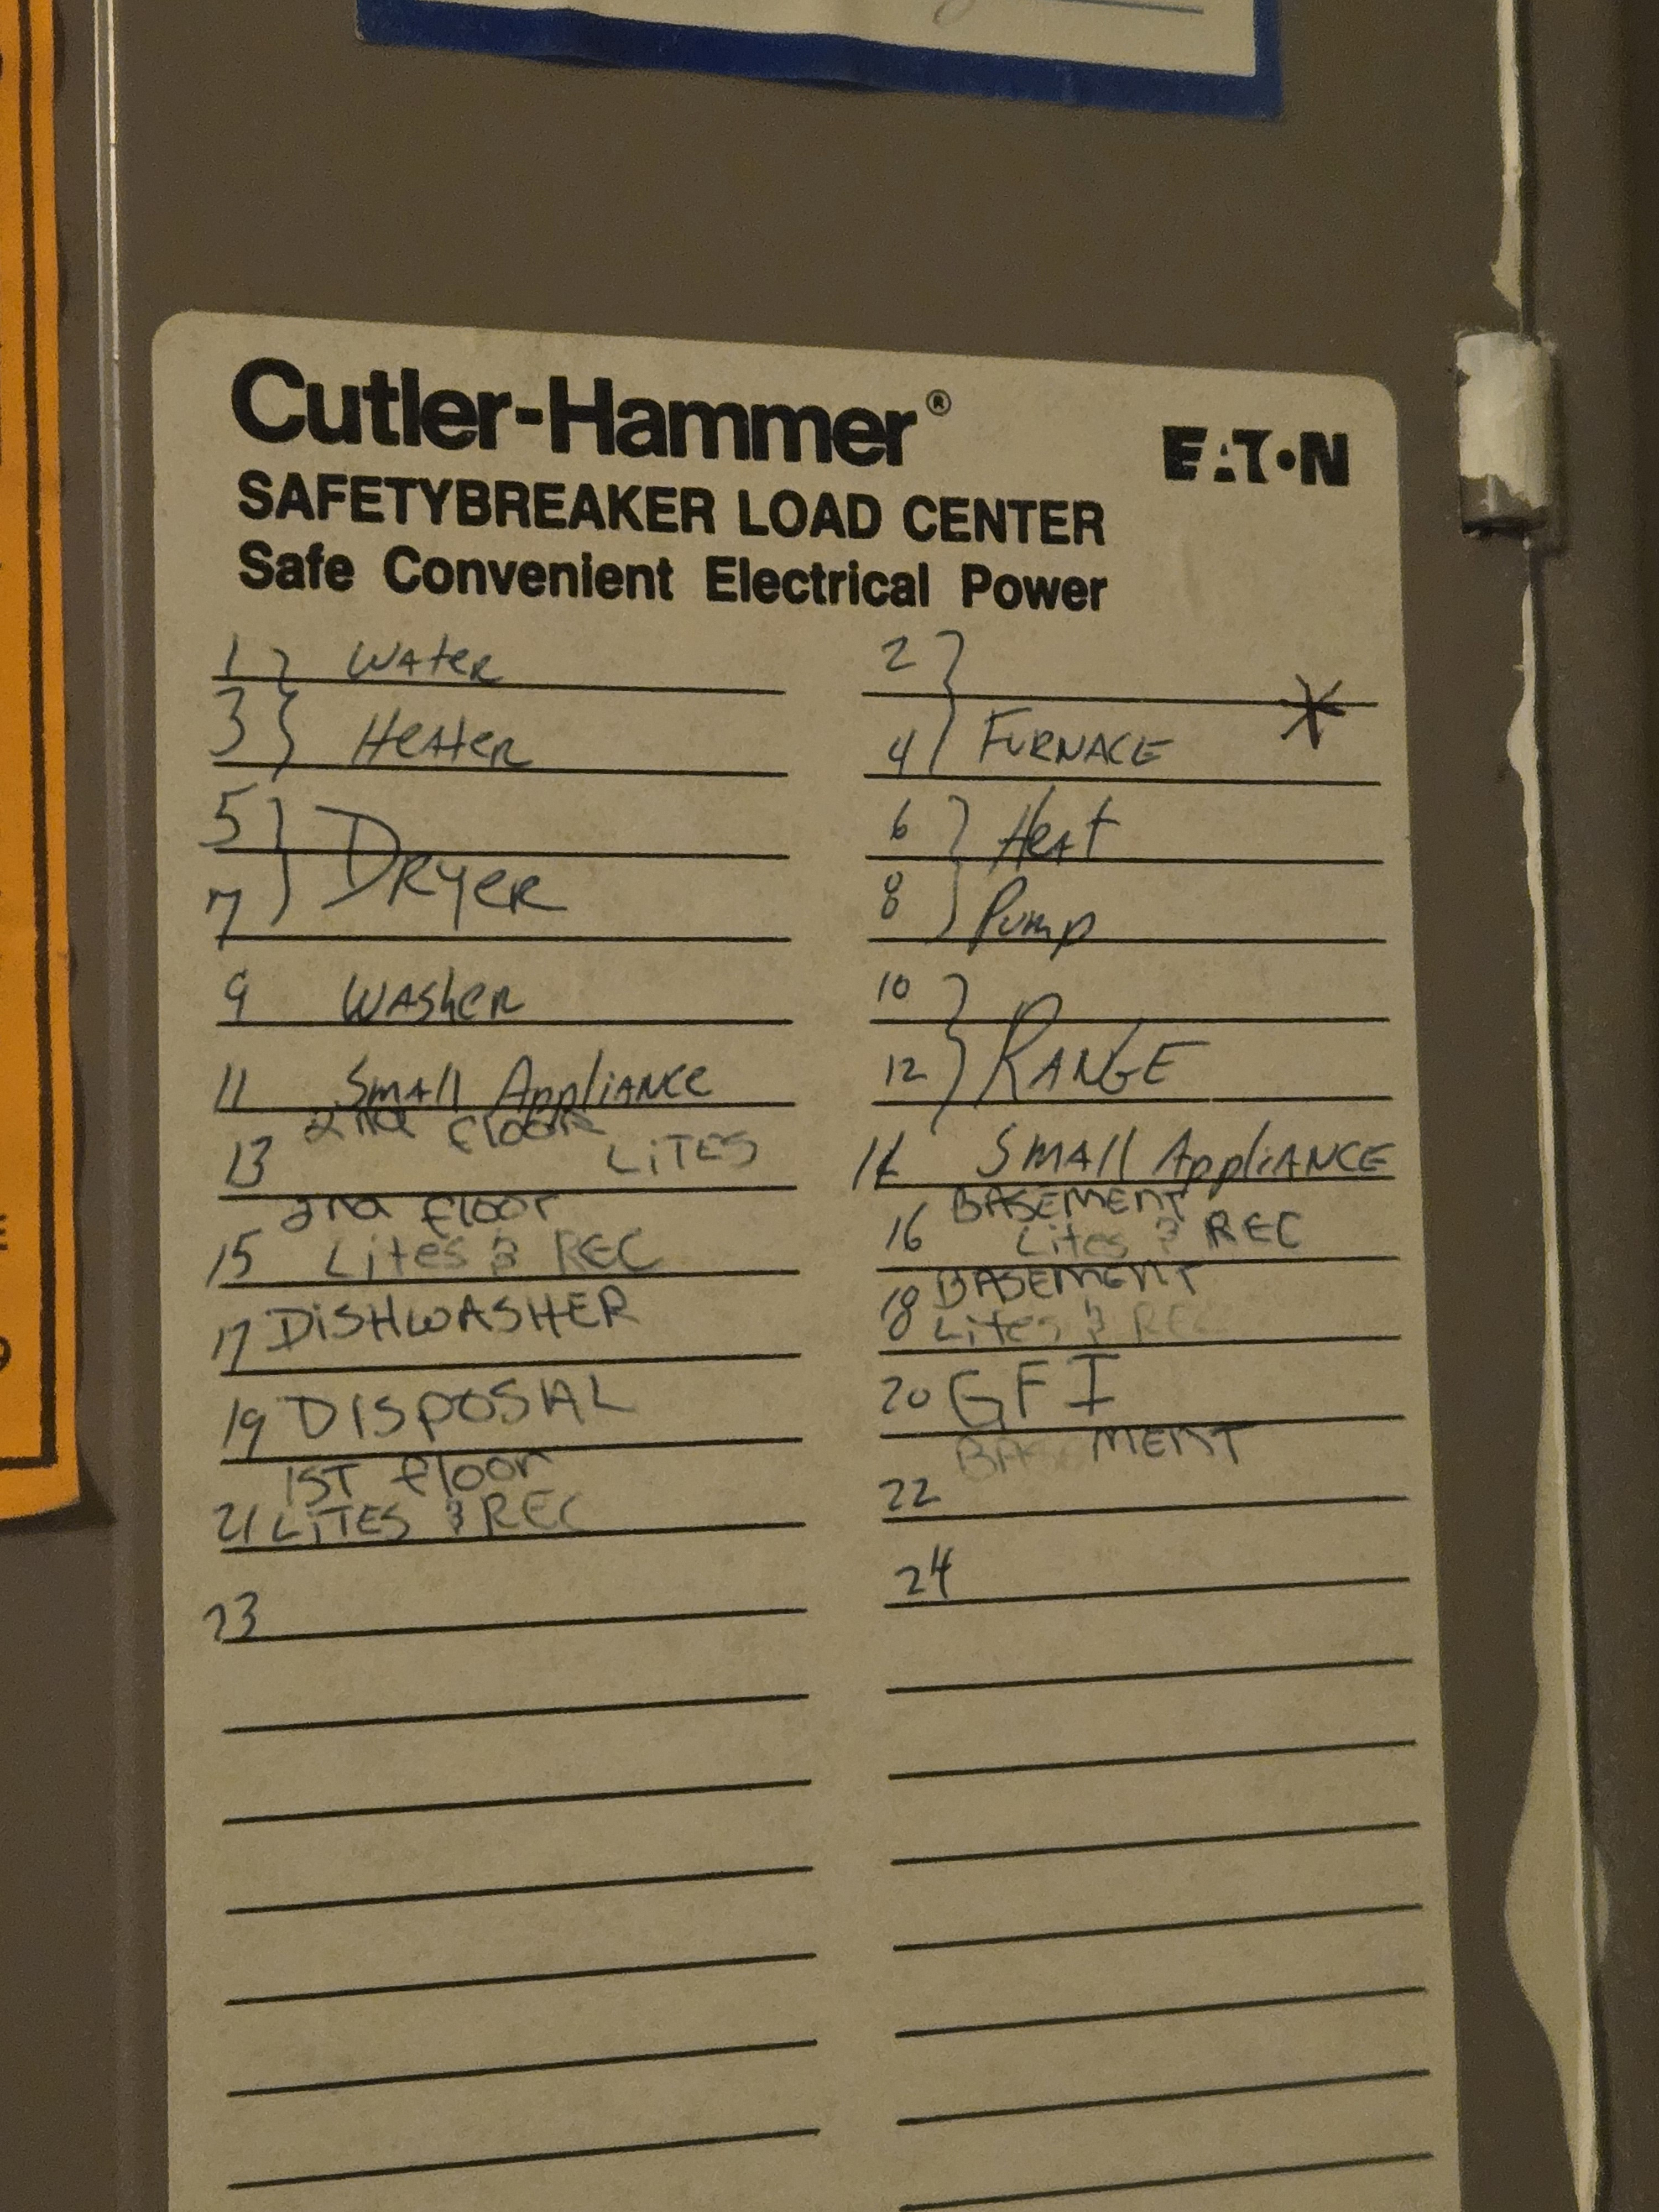 Cutler-Hammer®
EATON
SAFETYBREAKER LOAD CENTER
Safe Convenient Electrical Power
1 } Water
3 } Heater
5 } Dryer
7
9 Washer
11 Small Appliance
2nd floor
13 LiTES
2nd floor
15 Lites & REC
17 DISHWASHER
19 DISPOSAL
1ST floor
21 LiTES & REC
23
2 }
4 FURNACE
6 } Heat
8 } Pump
10 } RANGE
12
14 Small Appliance
BASEMENT
16 Lites & REC
BASEMENT
18 Lites & REC
20 GFI
BASEMENT
22
24